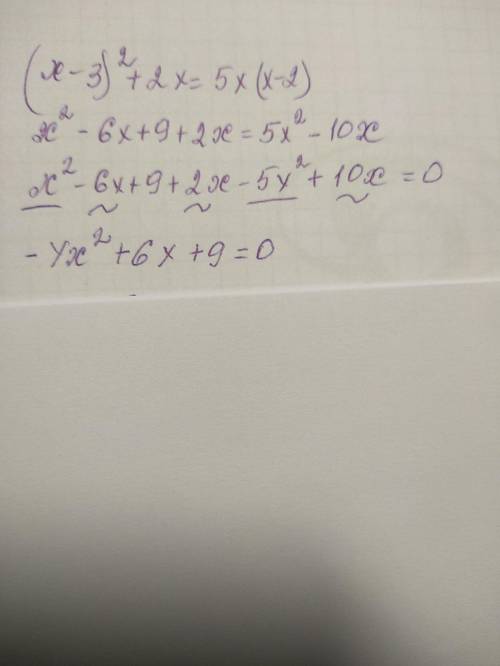 (x-3)² + 2x = 5x(x-2)
x² - 6x + 9 + 2x = 5x² - 10x
x² - 6x + 9 + 2x - 5x² + 10x = 0
- 4x² + 6x + 9 = 0